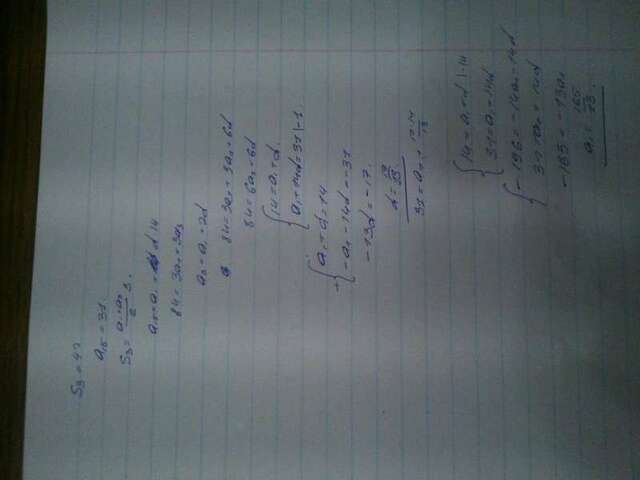 S₃ = 42
a₁₅ = 31
S₃ = (a₁+a₃)/2 · 3
a₁₅ = a₁ + d·14
84 = 3a₁ + 3a₃
a₃ = a₁ + 2d
84 = 3a₁ + 3a₁ + 6d
84 = 6a₁ + 6d
{ 14 = a₁ + d
{ a₁ + 14d = 31 |-1
{ a₁ + d = 14
{ -a₁ - 14d = -31
-13d = -17
31 = a₁ + 17·14/13
{ 14 = a₁ + d |-14
{ 31 = a₁ + 14d
{ -196 = -14a₁ - 14d
{ 31 = a₁ + 14d
-165 = -13a₁
a₁ = 165/13.